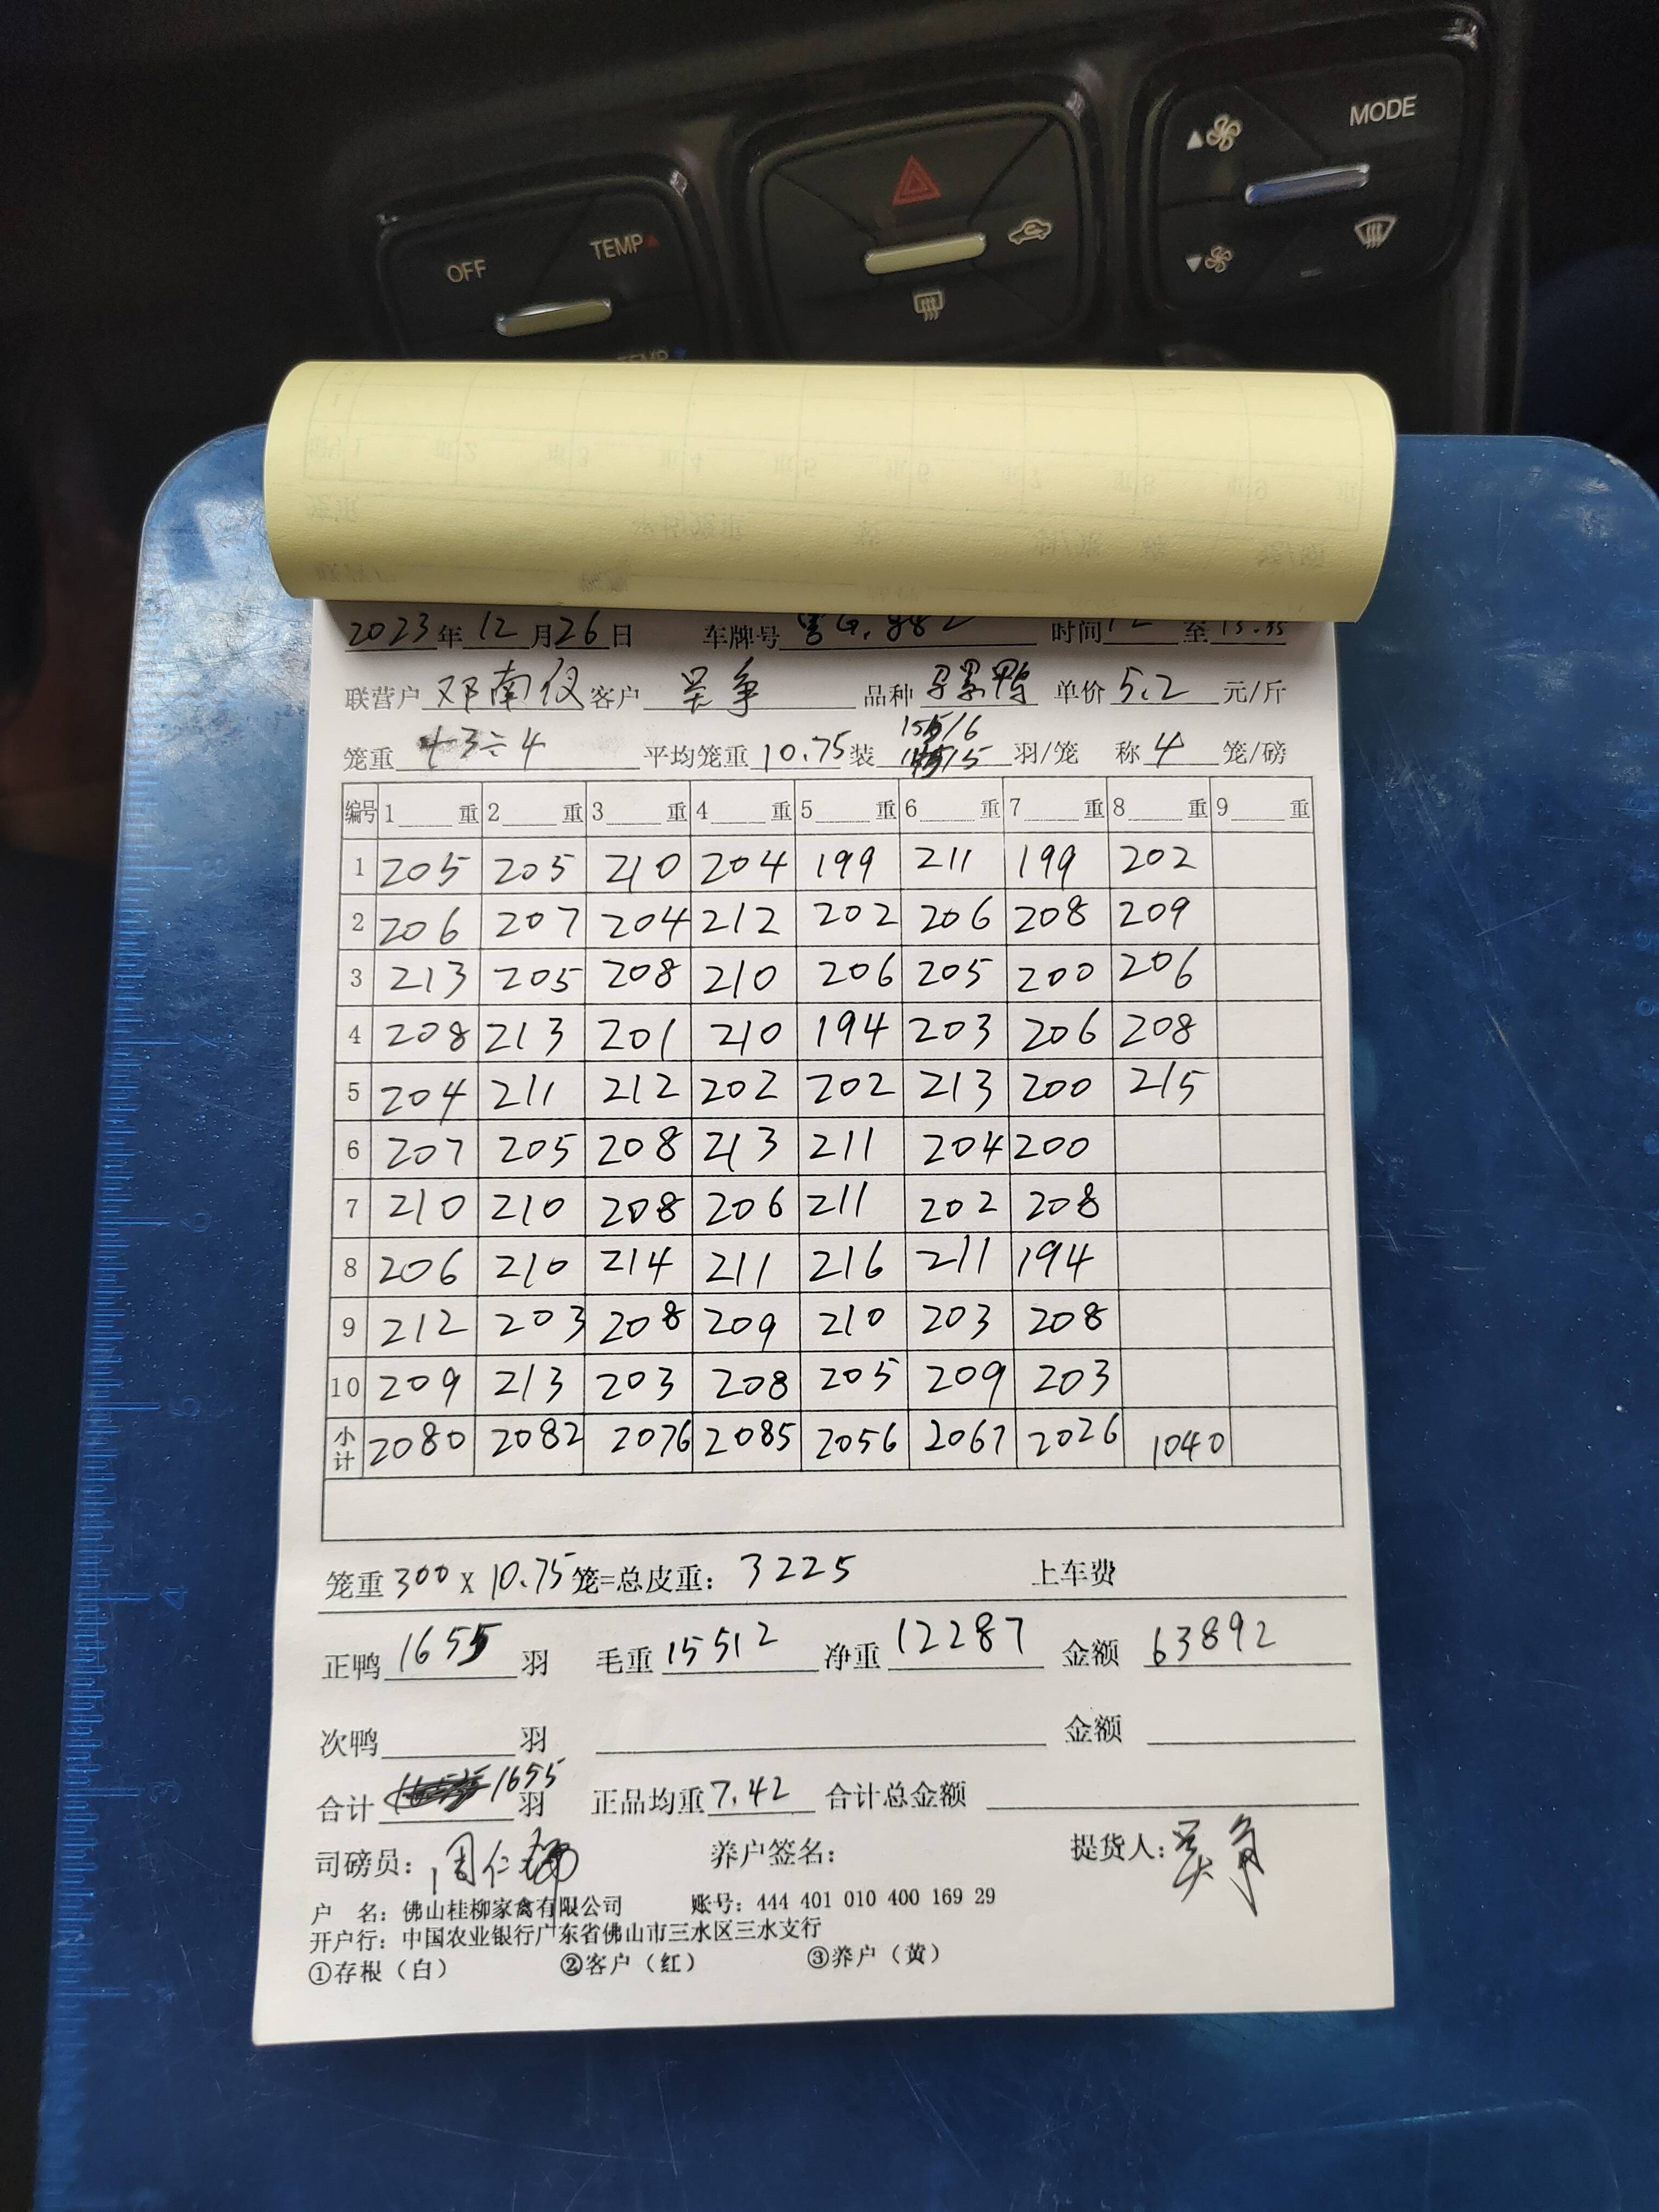 MODE
OFF TEMP
TEMP
2023年12月26日 车牌号 时间 至
联营户 邓南仪 客户 吴争 品种 单价 5.2 元/斤
笼重 43÷4 平均笼重 10.75 装 155/6 羽/笼 称 4 笼/磅
编号 1 重 2 重 3 重 4 重 5 重 6 重 7 重 8 重 9 重
1 205 205 210 204 199 211 199 202
2 206 207 204 212 202 206 208 209
3 213 205 208 210 206 205 200 206
4 208 213 201 210 194 203 206 208
5 204 211 212 202 202 213 200 215
6 207 205 208 213 211 204 200
7 210 210 208 206 211 202 208
8 206 210 214 211 216 211 194
9 212 203 208 209 210 203 208
10 209 213 203 208 205 209 203
小计 2080 2082 2076 2085 2056 2067 2026 1040
笼重 300 x 10.75 笼=总皮重: 3225 上车费
正鸭 1655 羽 毛重 15512 净重 12287 金额 63892
次鸭 羽 金额
合计 1655 羽 正品均重 7.42 合计总金额
司磅员: 养户签名: 提货人:
户 名: 佛山桂柳家禽有限公司 账号: 444 401 010 400 169 29
开户行: 中国农业银行广东省佛山市三水区三水支行
①存根(白) ②客户(红) ③养户(黄)